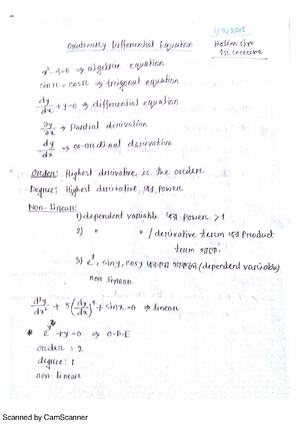 1/9/2015
Ordinary Differential Equation
Halim sir
1st Lecture
x² - 4 = 0 ⇒ algebric equation
sin x = cos x ⇒ trigonal equation
dy/dx + y = 0 ⇒ differential equation
∂y/∂x → Partial derivation
dy/dx ⇒ co-ordinal derivative
Order: Highest derivative is the order
Degree: Highest derivative এর Power
Non-linear:
1) dependent variable এর Power > 1
2) " " / derivative term এর Product
term থাকে.
3) e^y, siny, cosy (dependent variable)
non linear
+ sinx = 0 ⇒ linear
+ y = 0 ⇒ O.D.E
order: 2
degree: 1
non-linear
Scanned by CamScanner